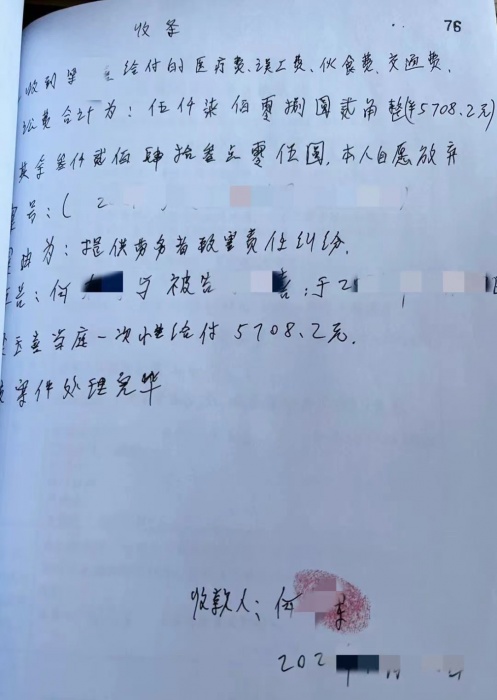 收条
76
收到梁 给付的医疗费、误工费、伙食费、交通费、
费合计为：伍仟柒佰零捌圆贰角整(¥5708.2元)
其余叁仟贰佰肆拾叁点零伍圆，本人自愿放弃
号：( 2 )
由为：提供劳务者致害责任纠纷。
告：何 与被告 喜：于2
当庭一次性给付5708.2元.
案件处理完毕
收款人：何
202